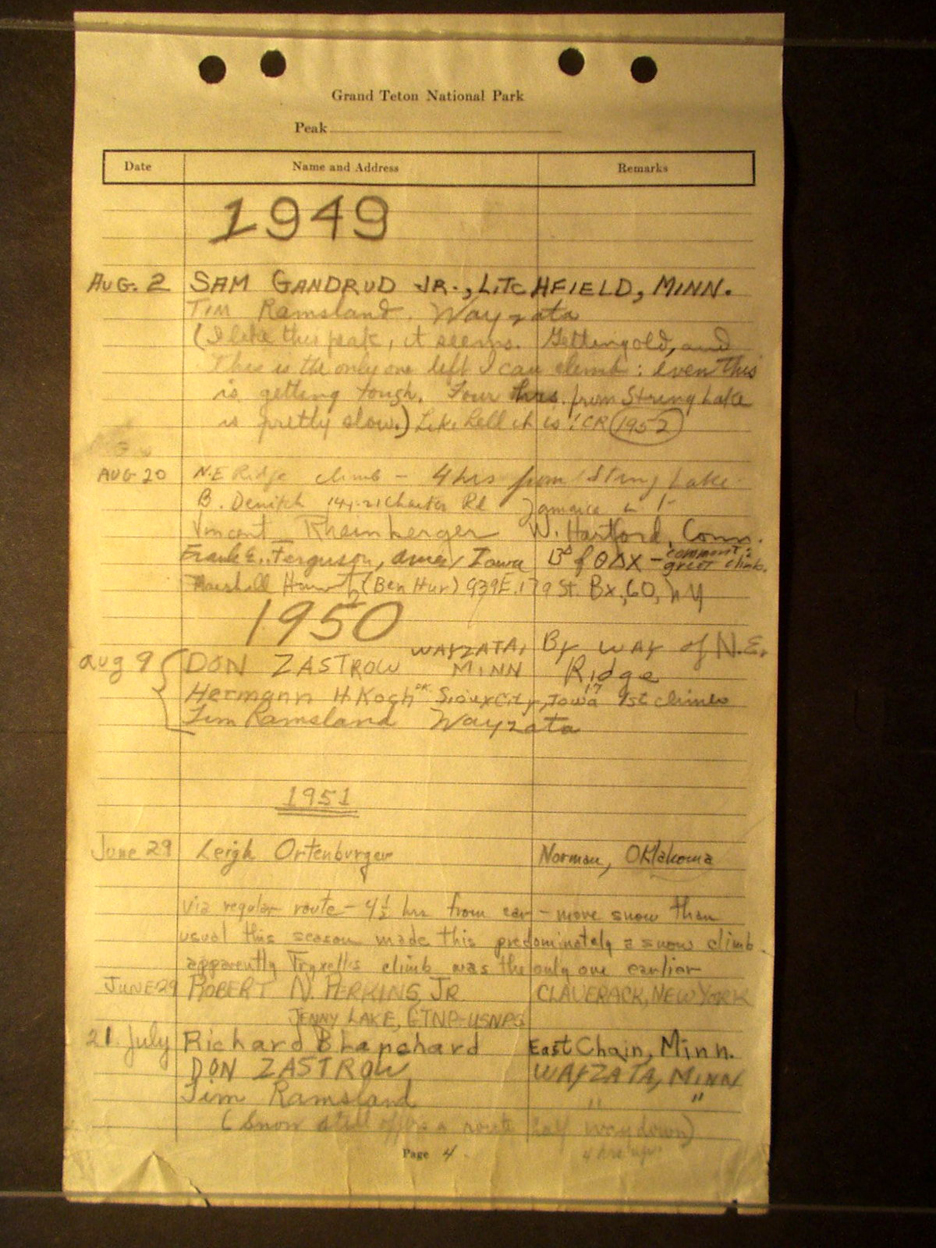 Grand Teton National Park
Peak
Date Name and Address Remarks
1949
AUG. 2 SAM GANDRUD JR., LITCHFIELD, MINN.
Tim Ramsland, Wayzata
(I like this peak, it seems. Getting old, and
This is the only one left I can climb: even this
is getting tough. Four hrs. from String Lake
is pretty slow.) Like hell it is! CR 1952
AUG 20 N.E. Ridge climb - 4 hrs from String Lake
B. Rd Jamaica
Vincent Rheinberger W. Hartford, Conn.
Frank E. Ferguson, Ames, Iowa B of ΘΔX - comment: great climb.
Marshall (Ben Hur) 939 E. 179 St. Bx, 60, NY
1950
Aug 9 DON ZASTROW WAYZATA, MINN By way of N.E. Ridge
Hermann H. Koch Sioux City, Iowa 1st climb
Tim Ramsland Wayzata
1951
June 29 Leigh Ortenburger Norman, Oklahoma
via regular route - 4½ hrs from car - more snow than
usual this season made this predominately a snow climb.
apparently Fryxell's climb was the only one earlier
JUNE 29 ROBERT N. PERKINS, JR CLAVERACK, NEW YORK
JENNY LAKE, GTNP-USNPS
21 July Richard Blanchard East Chain, Minn.
DON ZASTROW WAYZATA, MINN
Tim Ramsland " "
(Snow still offers a route half way down)
Page 4 4 hrs up